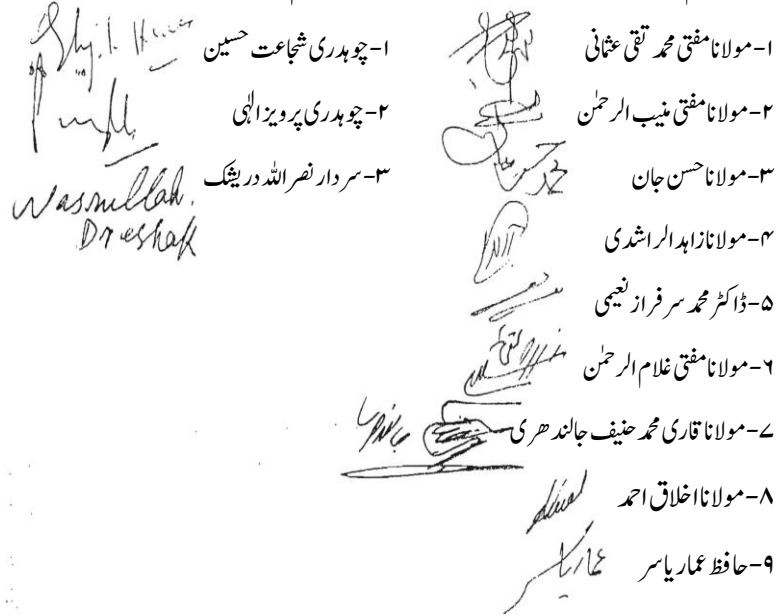 ۱-مولانا مفتی محمد تقی عثمانی
۲-مولانا مفتی منیب الرحمٰن
۳-مولانا حسن جان
محمد حسن جان
۴-مولانا زاہد الراشدی
۵-ڈاکٹر محمد سرفراز نعیمی
۶-مولانا مفتی غلام الرحمٰن
۷-مولانا قاری محمد حنیف جالندھری
۸-مولانا اخلاق احمد
۹-حافظ عمار یاسر
عمار یاسر
۱-چوہدری شجاعت حسین
۲-چوہدری پرویز الٰہی
۳-سردار نصر اللہ دریشک
Nasrullah.
Dreshak